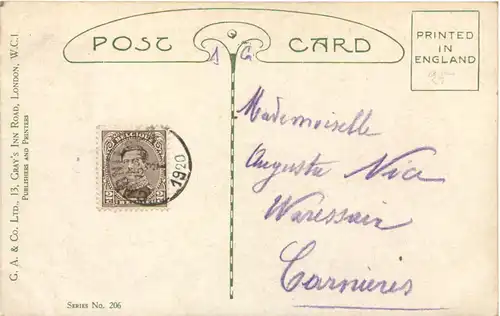 POST CARD
PRINTED
IN
ENGLAND
G. A. & Co. LTD., 13, GRAY'S INN ROAD, LONDON, W.C.1.
PUBLISHERS AND PRINTERS
BELGIQUE
1920
Mademoiselle
Augusta Nice
Waressaix
Carnières
SERIES No. 206